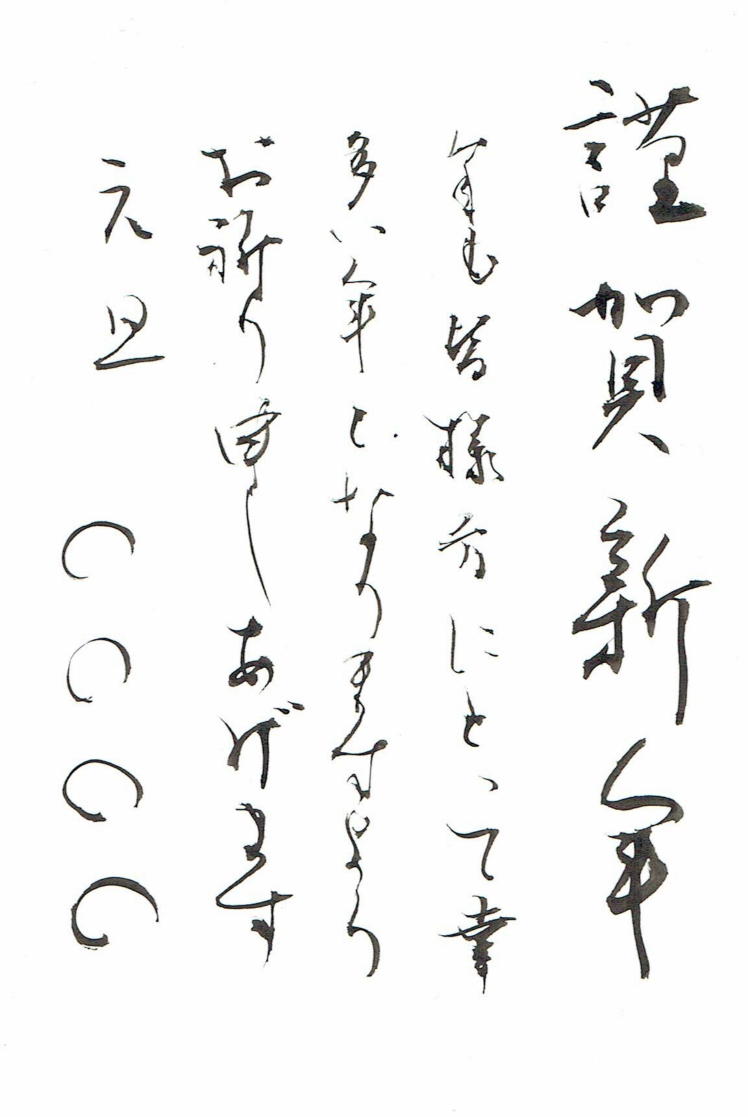 謹賀新年
今年も皆様方にとって幸
多い年となりますよう
お祈り申しあげます
元旦 〇〇〇〇